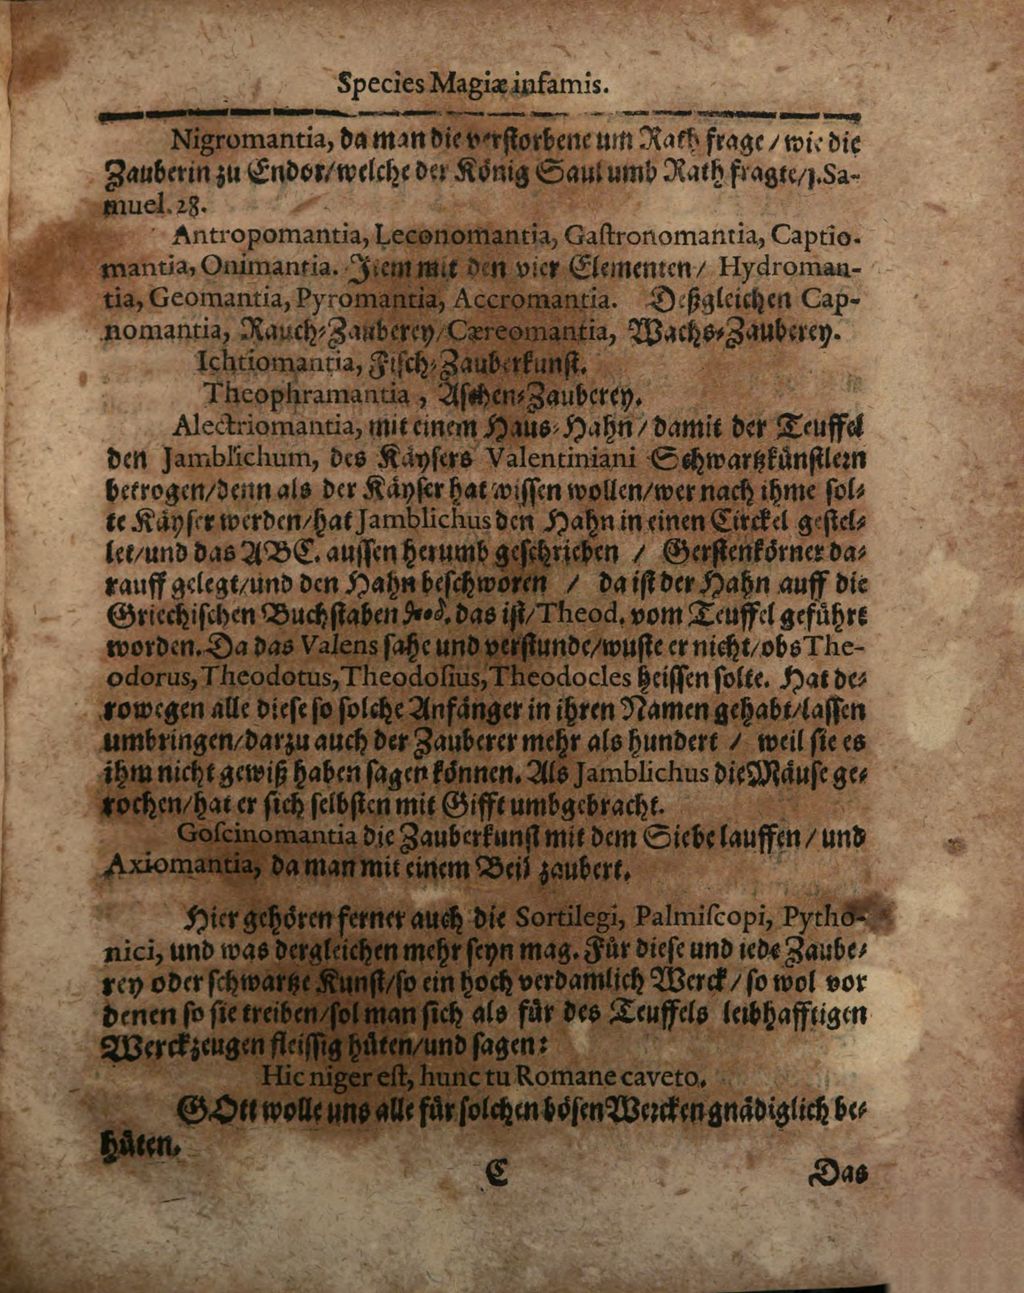 Species Magiæ infamis.
Nigromantia, da man die verstorbene um Rath frage / wie die
Zauberin zu Endor/welche der König Saul umb Rath fragte/1.Sa-
muel.28.
Antropomantia, Leconomantia, Gaſtronomantia, Captio-
mantia, Onimantia. Item mit den vier Elementen/ Hydroman-
tia, Geomantia, Pyromantia, Accromantia. Deßgleichen Cap-
nomantia, Rauch-Zauberey/Cæreomantia, Wachs-Zauberey.
Ichtiomantia, Fiſch-Zauberkunſt.
Theophramantia , Aſchen-Zauberey.
Alectriomantia, mit einem Haus-Hahn / damit der Teuffel
den Jamblichum, des Käyſers Valentiniani Schwartzkünſtlern
betrogen/denn als der Käyſer hat wiſſen wollen/wer nach ihme ſol-
te Käyſer werden/hat Jamblichus den Hahn in einen Circkel geſtel-
let/und das ABC. auſſen herumb geſchrieben / Gerſtenkörner da-
rauff gelegt/und den Hahn beſchworen / da iſt der Hahn auff die
Griechiſchen Buchſtaben θεοδ. das iſt/Theod. vom Teuffel geführt
worden. Da das Valens ſahe und verſtunde/wuſte er nicht/obs The-
odorus, Theodotus, Theodoſius, Theodocles heiſſen ſolte. Hat de-
rowegen alle dieſe ſo ſolche Anfänger in ihren Namen gehabt/laſſen
umbringen/darzu auch der Zauberer mehr als hundert / weil ſie es
ihm nicht gewiß haben ſagen können. Als Jamblichus die Mäuſe ge-
rochen/hat er ſich ſelbſten mit Gifft umbgebracht.
Goſcinomantia die Zauberkunſt mit dem Siebe lauffen / und
Axiomantia, da man mit einem Beil zaubert.
Hier gehören ferner auch die Sortilegi, Palmiſcopi, Pytho-
nici, und was dergleichen mehr ſeyn mag. Für dieſe und iede Zaube-
rey oder ſchwartze Kunſt/ſo ein hoch verdamlich Werck / ſo wol vor
denen ſo ſie treiben/ſol man ſich als für des Teuffels leibhafftigen
Werckzeugen fleiſſig hüten/und ſagen:
Hic niger eſt, hunc tu Romane caveto.
GOtt wolle uns alle für ſolchen böſen Wercken gnädiglich be-
hüten.
C Das